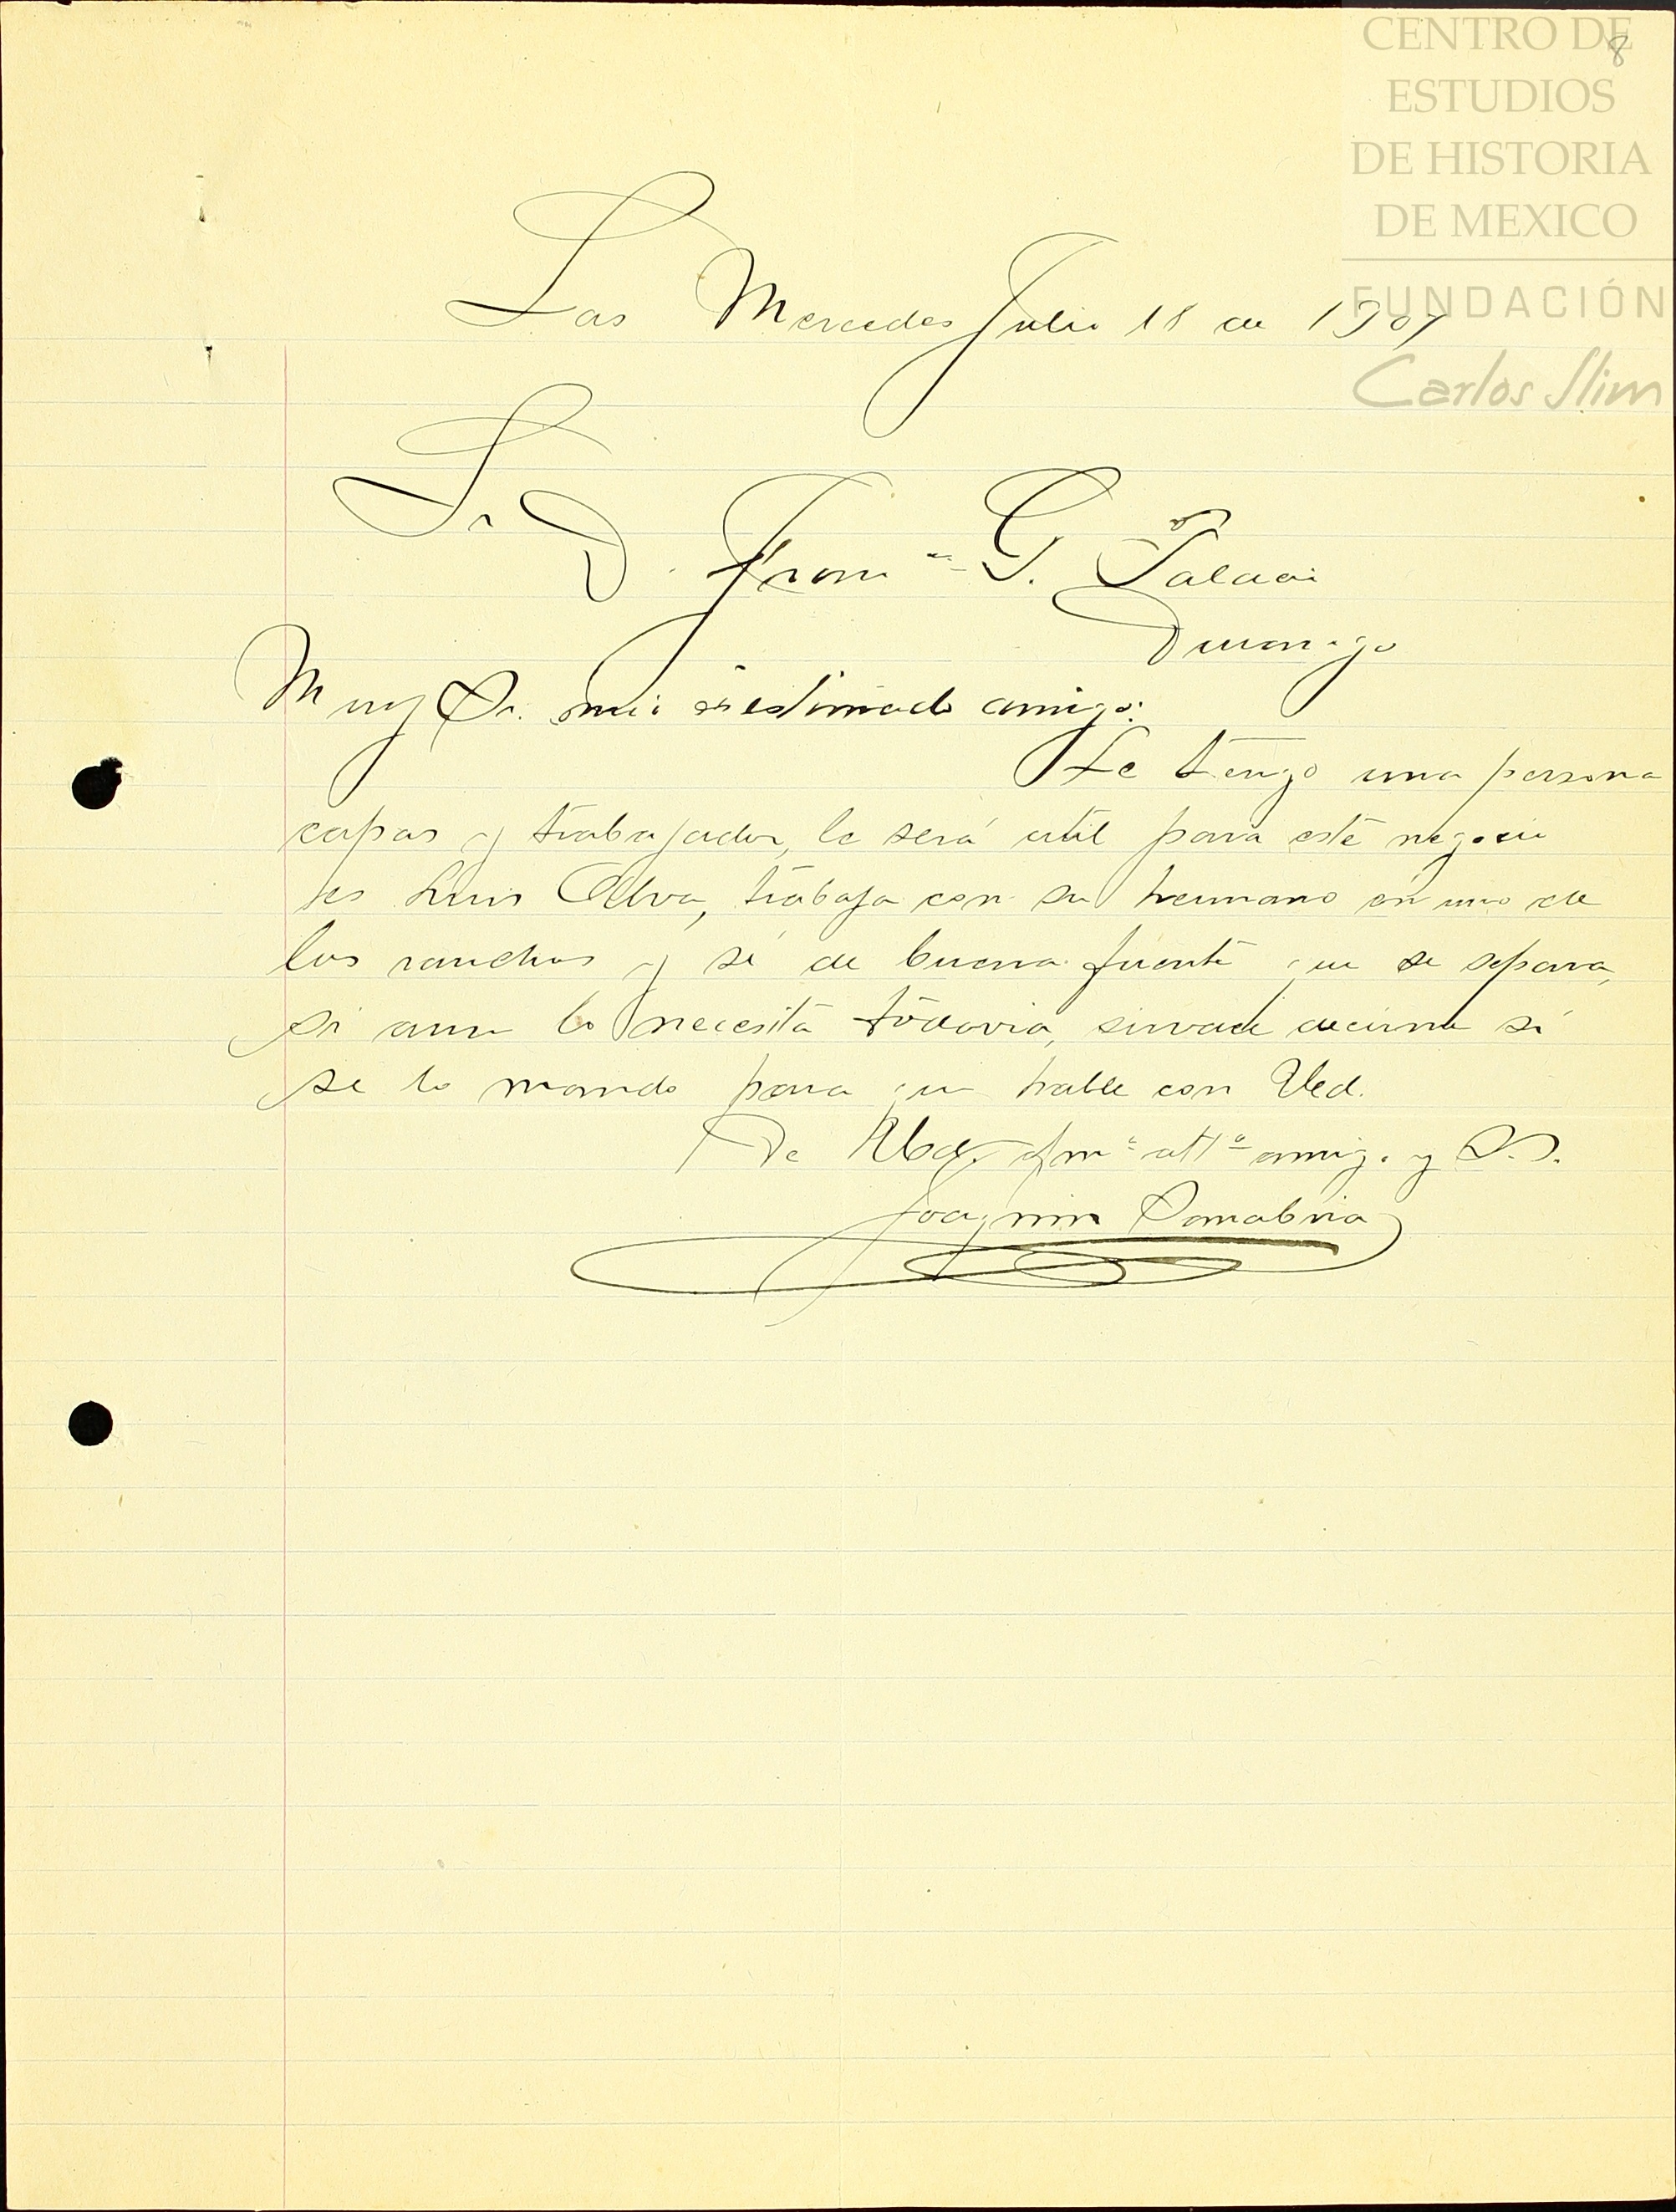 CENTRO DE
ESTUDIOS
DE HISTORIA
DE MEXICO
FUNDACIÓN
Carlos Slim
8
Las Mercedes Julio 18 de 1907
Sr
D. Franco G. Palacio
Durango
Muy Sr. mio y estimado amigo:
Le tengo una persona
capas y trabajador, le será util para este negocio
es Luis Alva, trabaja con su hermano en uno de
los ranchos y sé de buena fuente que se separa,
si aun lo necesita todavia, sirvase decirme si
se lo mando para que hable con Ud.
De Ud. afmo atto amigo y S. S.
Joaquin Sanabria